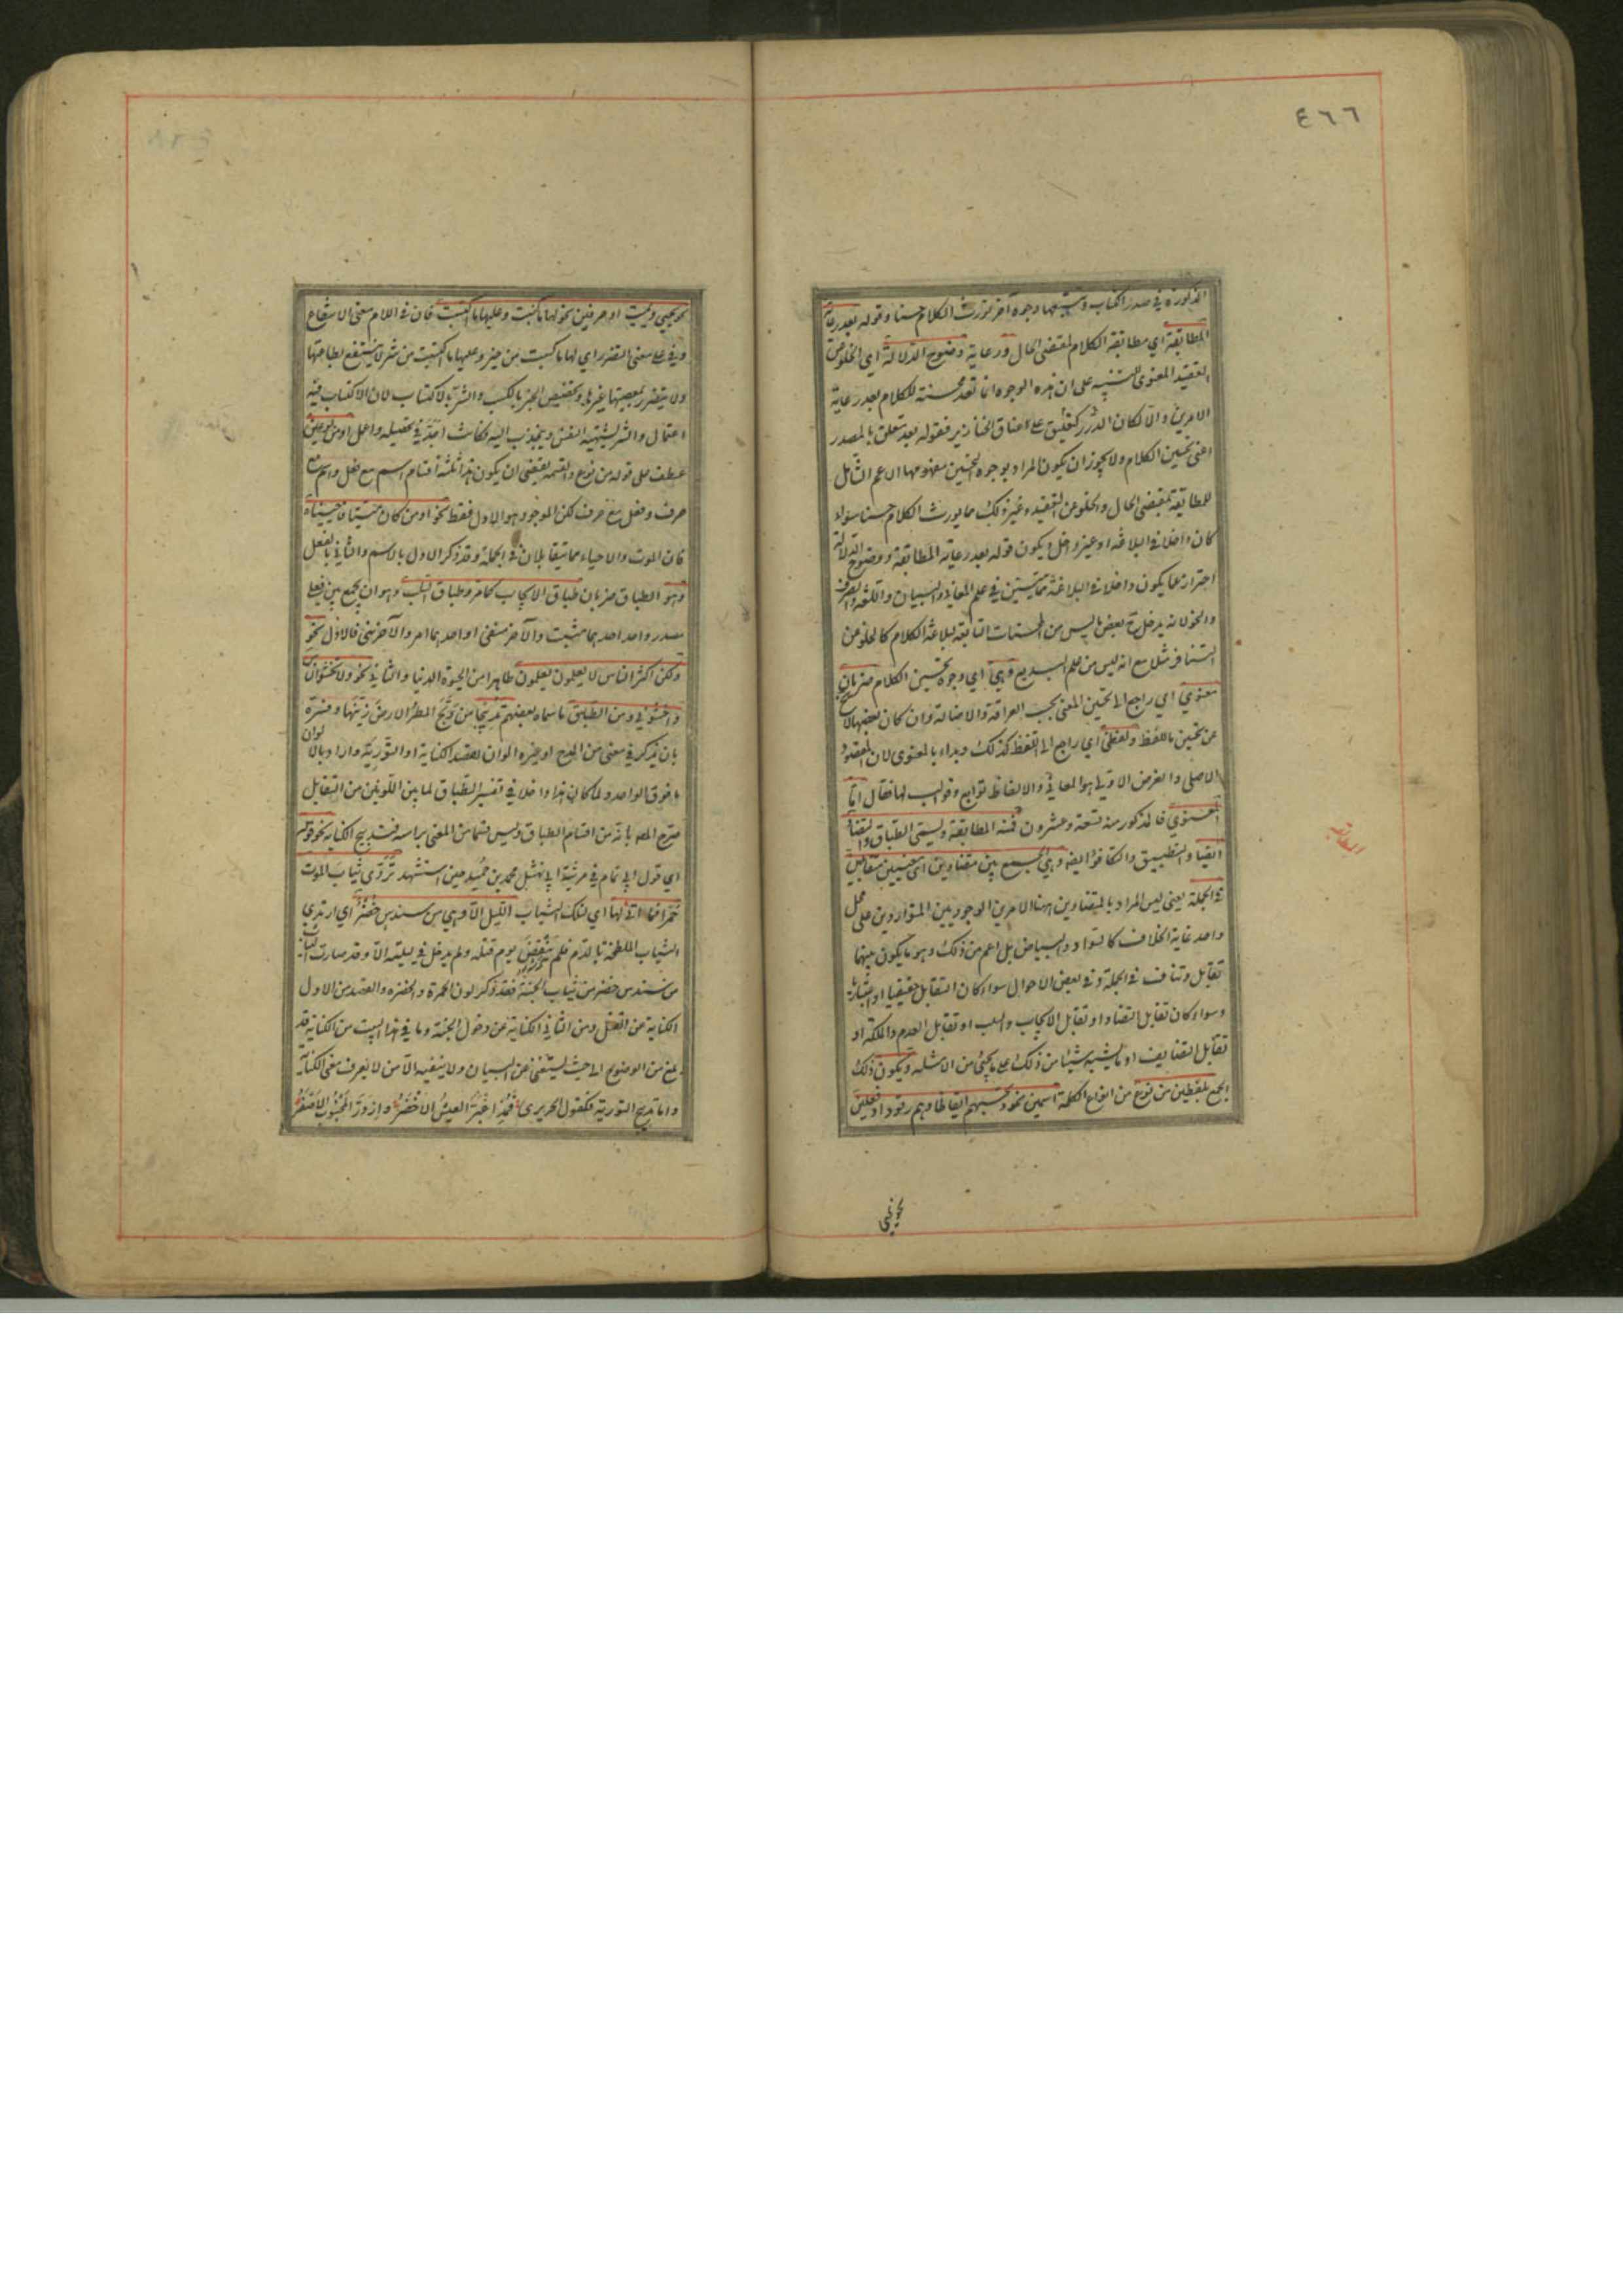 ٤٦٦
المذكورة في صدر الكتاب وتتبعها وجوه آخر تورث الكلام حسنا وقوله بعد رعاية
المطابقة اي مطابقة الكلام لمقتضى الحال ورعاية وضوح الدلالة اي الخلو عن
التعقيد المعنوى للتنبيه على ان هذه الوجوه انما تعد محسنة للكلام بعد رعاية
الامرين والا لكان كتعليق الدرر على اعناق الخنازير فقوله بعد متعلق بالمصدر
اعنى تحسين الكلام ولا يجوز ان يكون المراد بوجوه التحسين مفهومها الاعم الشامل
للمطابقة لمقتضى الحال والخلو عن التعقيد وغير ذلك مما يورث الكلام حسنا سواء
كان داخلا في البلاغة او غير داخل ويكون قوله بعد رعاية المطابقة ووضوح الدلالة
احترازا عما يكون داخلا في البلاغة مما يتبين في علم المعاني والبيان واللغة والصرف
والنحو لانه يدخل ح بعض ما ليس من المحسنات التابعة لبلاغة الكلام كالخلو عن
التنافر مثلا مع انه ليس من علم البديع وهي اي وجوه تحسين الكلام ضربان
معنوي اي راجع الى تحسين المعنى بحسب العراقة والاصالة وان كان بعضها لا يخ
عن تحسين اللفظ ولفظي اي راجع الى اللفظ كذلك وبداء بالمعنوى لان المقصود
الاصلي والغرض الاولى هو المعاني والالفاظ توابع وقوالب لها فقال اما
المعنوي فالمذكور منه تسعة وعشرون فمنه المطابقة وليسمى الطباق والتضاد
ايضا والتطبيق والتكافؤ ايضه وهي الجمع بين متضادين اى معنيين متقابلين
في الجملة يعنى ليس المراد بالمتضادين ههنا الامرين الوجوديين المتواردين على محل
واحد غاية الخلاف كالسواد والبياض بل اعم من ذلك وهو ما يكون بينهما
تقابل وتناف في الجملة وفي بعض الاحوال سواء كان التقابل حقيقيا او اعتباريا
وسواء كان تقابل التضاد او تقابل الايجاب والسلب او تقابل العدم والملكة او
تقابل التضايف او ما يشبه شيئا من ذلك على ما يجئ من الامثلة ويكون ذلك
الجمع بلفظين من نوع من انواع الكلمة اسمين نحو وتحسبهم ايقاظا وهم رقود او فعلين
نحو يحيي
نحو يحيي ويميت او حرفين نحو لها ما كسبت وعليها ما اكتسبت فان في اللام معنى الانتفاع
وفي على معنى التضرر اي لها ما كسبت من خير وعليها ما اكتسبت من شر لا ينتفع بطاعتها
ولا يتضرر بمعصيتها غيرها وتخصيص الخير بالكسب والشر بالاكتساب لان الاكتساب فيه
اعتمال والشر تشتهيه النفس وتنجذب اليه فكانت اجد في تحصيله واعمل او من نوعين
عطف على قوله من نوع والقسمة يقتضى ان يكون هذا ثلثة اقسام اسم مع فعل واسم مع
حرف وفعل مع حرف لكن الموجود هو الاول فقط نحو اومن كان ميتا فاحييناه
فان الموت والاحياء مما يتقابلان في الجملة وقد ذكر الاول بالاسم والثاني بالفعل
وهو الطباق ضربان طباق الايجاب كما مر وطباق السلب وهو ان يجمع بين فعلي
مصدر واحد احدهما مثبت والآخر منفى او احدهما امر والآخر نهى فالاول نحو
ولكن اكثر الناس لا يعلمون يعلمون ظاهرا من الحيوة الدنيا والثاني نحو ولا تخشوا الناس
واخشوني ومن الطباق ما سماه بعضهم تدبيجا من دبج المطر الارض زينها وفسره
بان يذكر في معنى من المدح او غيره الوان لقصد الكناية او التورية واراد بالالوان
ما فوق الواحد ولما كان هذا داخلا في تفسير الطباق لما بين اللونين من التقابل
صرح المصه بانه من اقسام الطباق وليس قسما من المعنى براسه فتدبيج الكناية نحو قوله
اي قول ابي تمام في مرثية ابي نهشل محمد بن حميد حين استشهد تردى ثياب الموت
حمرا فما اتى لها اي لتلك الثياب الليل الا وهي من سندس خضر اي ارتدى
الثياب الملطخة بالدم فلم ينقض يوم قتله ولم يدخل في ليلته الا وقد صارت الثياب
من سندس خضر من ثياب الجنة فقد ذكر لون الحمرة والخضرة والقصد من الاول
الكناية عن القتل ومن الثاني الكناية عن دخول الجنة وما في هذا البيت من الكناية قد
بلغ من الوضوح الى حيث يستغنى عن البيان ولا ينفيه الا من لا يعرف معنى الكناية
واما تدبيج التورية فكقول الحريرى فمذ اغبر العيش الاخضر وازور المحبوب الاصفر